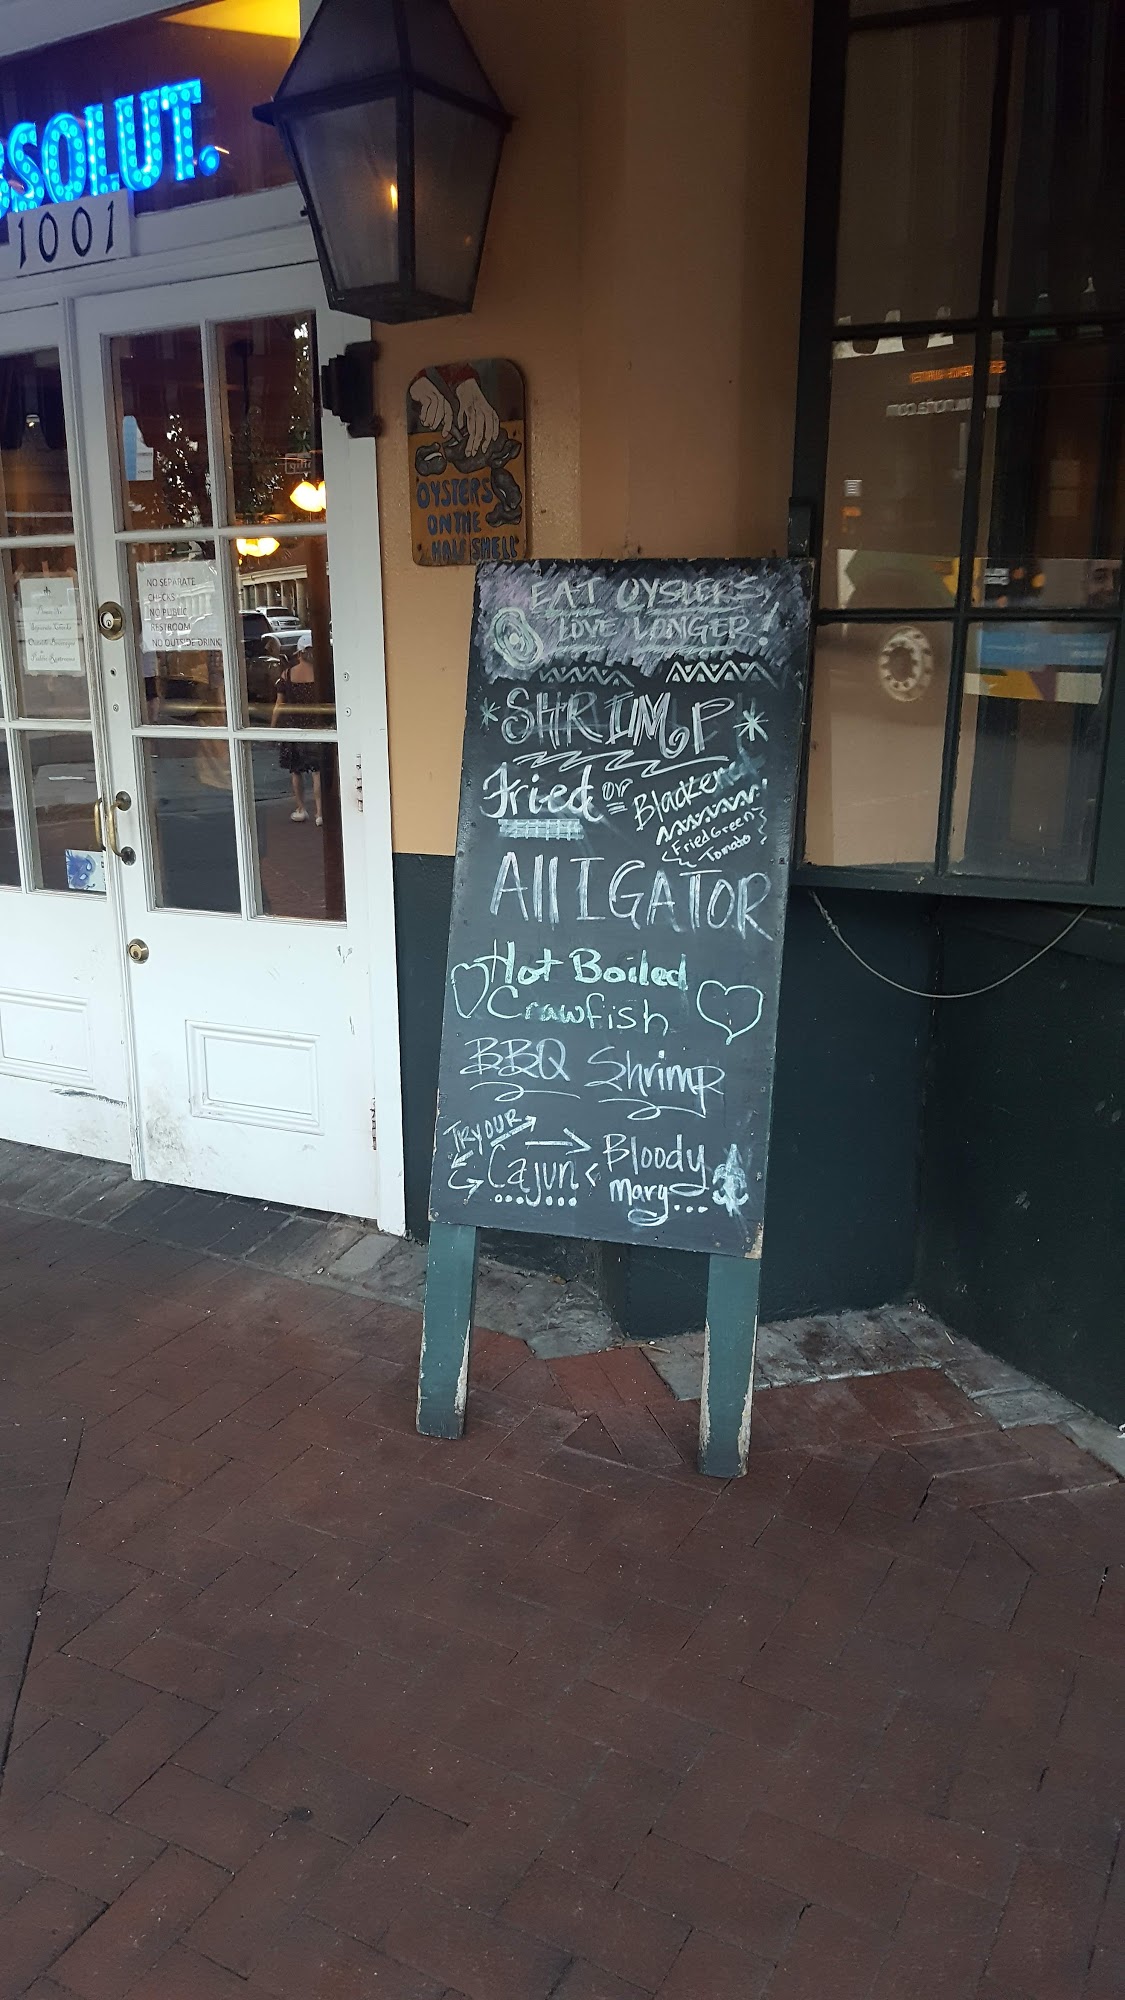 BSOLUT.
1001
OYSTERS
ON THE
HALF SHELL
NO SEPARATE
CHECKS
NO PUBLIC
RESTROOM
NO OUTSIDE DRINK
EAT OYSTERS,
LOVE LONGER!
SHRIMP
Fried or Blackened
Fried Green
Tomato
AllIGATOR
Hot Boiled
Crawfish
BBQ Shrimp
TRY OUR
Cajun Bloody
Mary...